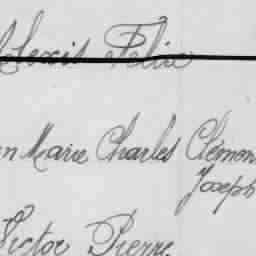 Alexis Félix
n Marie Charles Clémen
Joseph
Victor Pierre